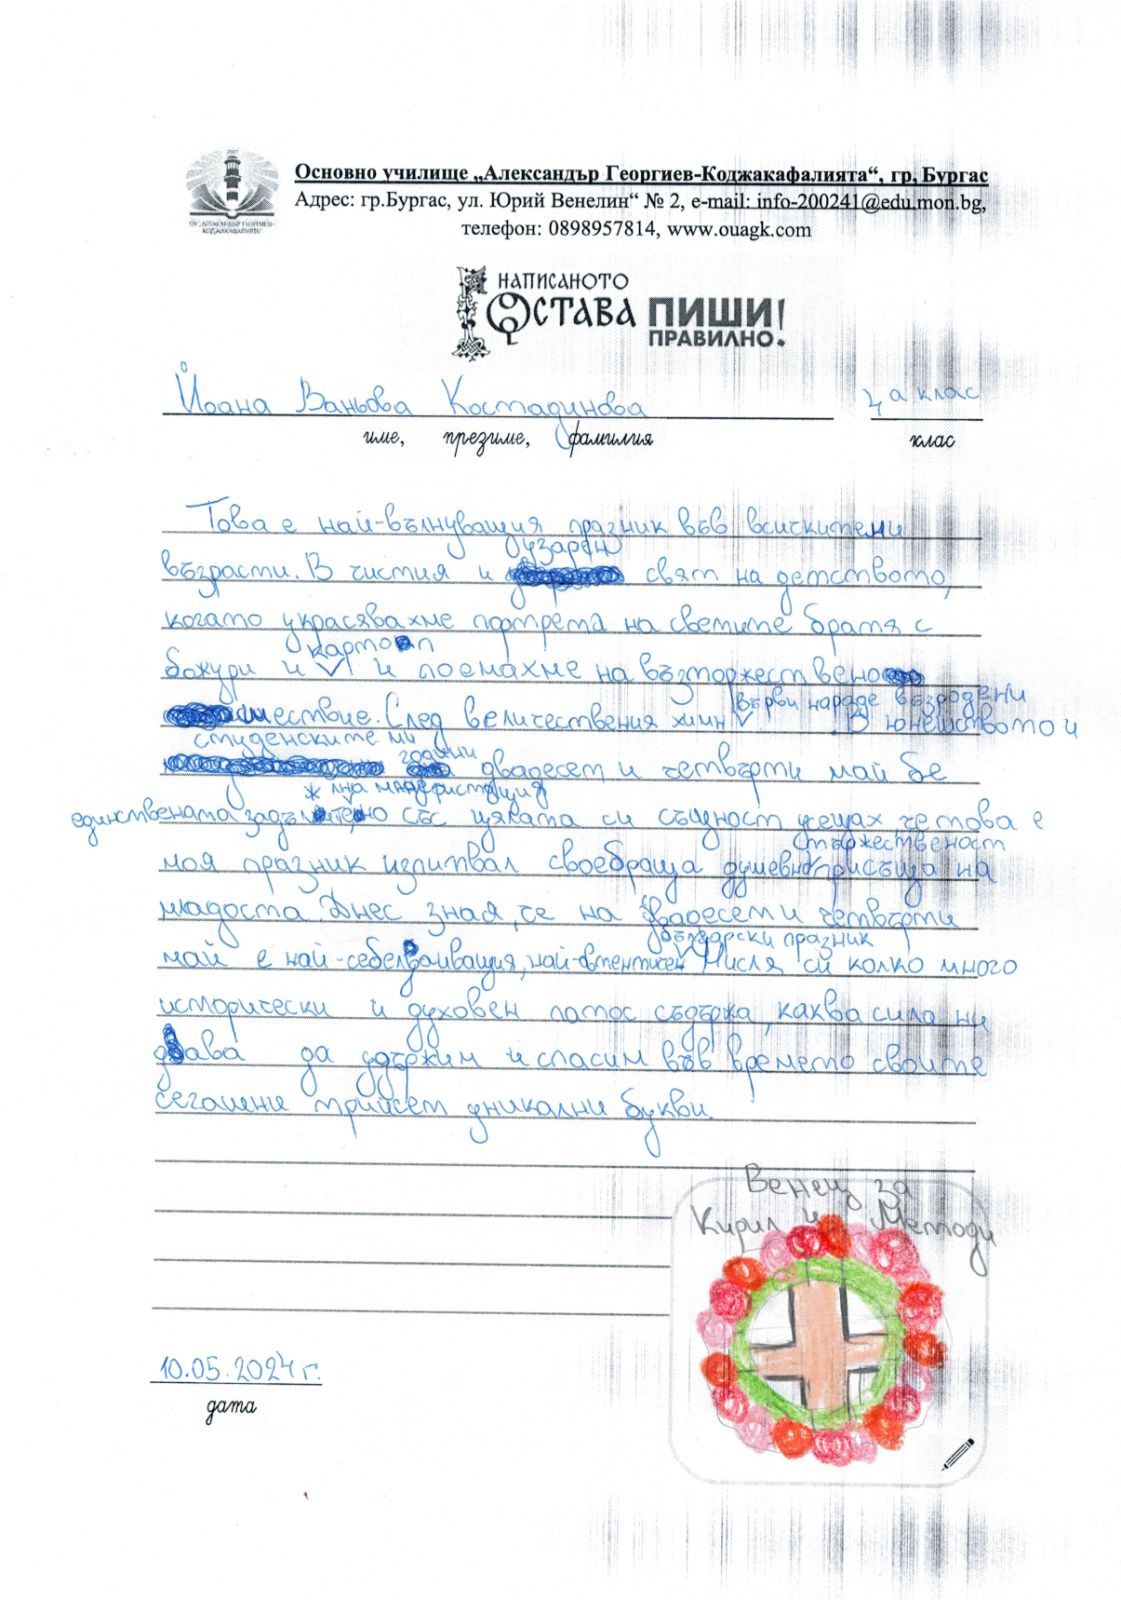 Основно училище „Александър Георгиев-Коджакафалията“, гр, Бургас
Адрес: гр.Бургас, ул. Юрий Венелин“ № 2, e-mail: info-200241@edu.mon.bg,
телефон: 0898957814, www.ouagk.com
2007
ОУ „АЛЕКСАНДЪР ГЕОРГИЕВ-
КОДЖАКАФАЛИЯТА“
НАПИСАНОТО
ОСТАВА ПИШИ
ПРАВИЛНО!
Йоана Ваньова Костадинова 4 а клас
име, презиме, фамилия клас
Това е най-вълнуващия празник във всичкитеми
бузарен
възрасти. В чистия и свят на детството,
когато украсявахме портрета на светите братя с
картоп
божури и и поемахме на възторжествено
Върви народе възродени
шествие. След величествения химн . В юнешството и
студенските ми години
двадесет и четвърти май бе
* лна манифристация
единствената задължително със цялата си същност усещах, че това е
стържественост
моя празник изпитвал своебраща душевно присъща на
младоста. Днес зная, че на двадесет и четвърти
български празник
май е най-себе, най-автентичен Мисля си колко много
исторически и духовен патос съдържа, каква сила ни
дава да удържим и спасим във времето своите
сегашни трийсет уникални букви.
Венец за
Кирил и Методи
10.05.2024 г.
дата